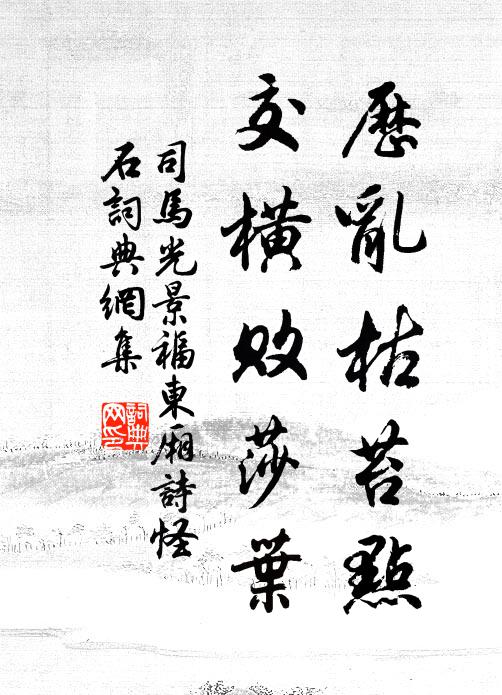 歷亂枯苔點
交橫敗莎葉
司馬光景福東廂詩怪
石詞典網集
詞典
网印